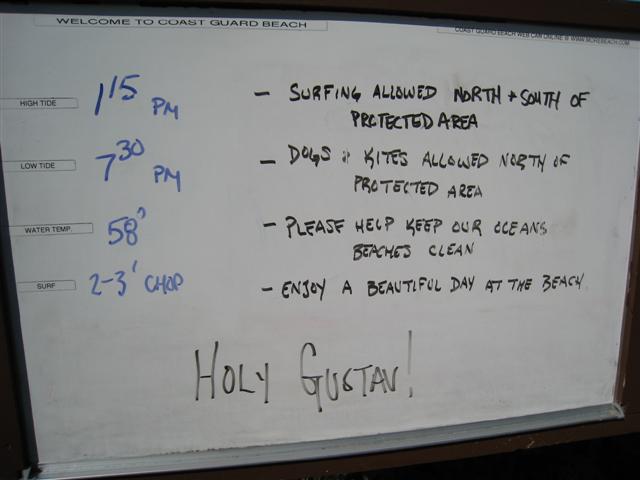 WELCOME TO COAST GUARD BEACH
COAST GUARD BEACH WEB CAM ONLINE @ WWW.MOREBEACH.COM
HIGH TIDE 1 15 PM
- SURFING ALLOWED NORTH + SOUTH OF
PROTECTED AREA
LOW TIDE 7 30 PM
- DOGS + KITES ALLOWED NORTH OF
PROTECTED AREA
WATER TEMP. 58°
- PLEASE HELP KEEP OUR OCEANS
BEACHES CLEAN
SURF 2-3' CHOP
- ENJOY A BEAUTIFUL DAY AT THE BEACH
HOLY GUSTAV!